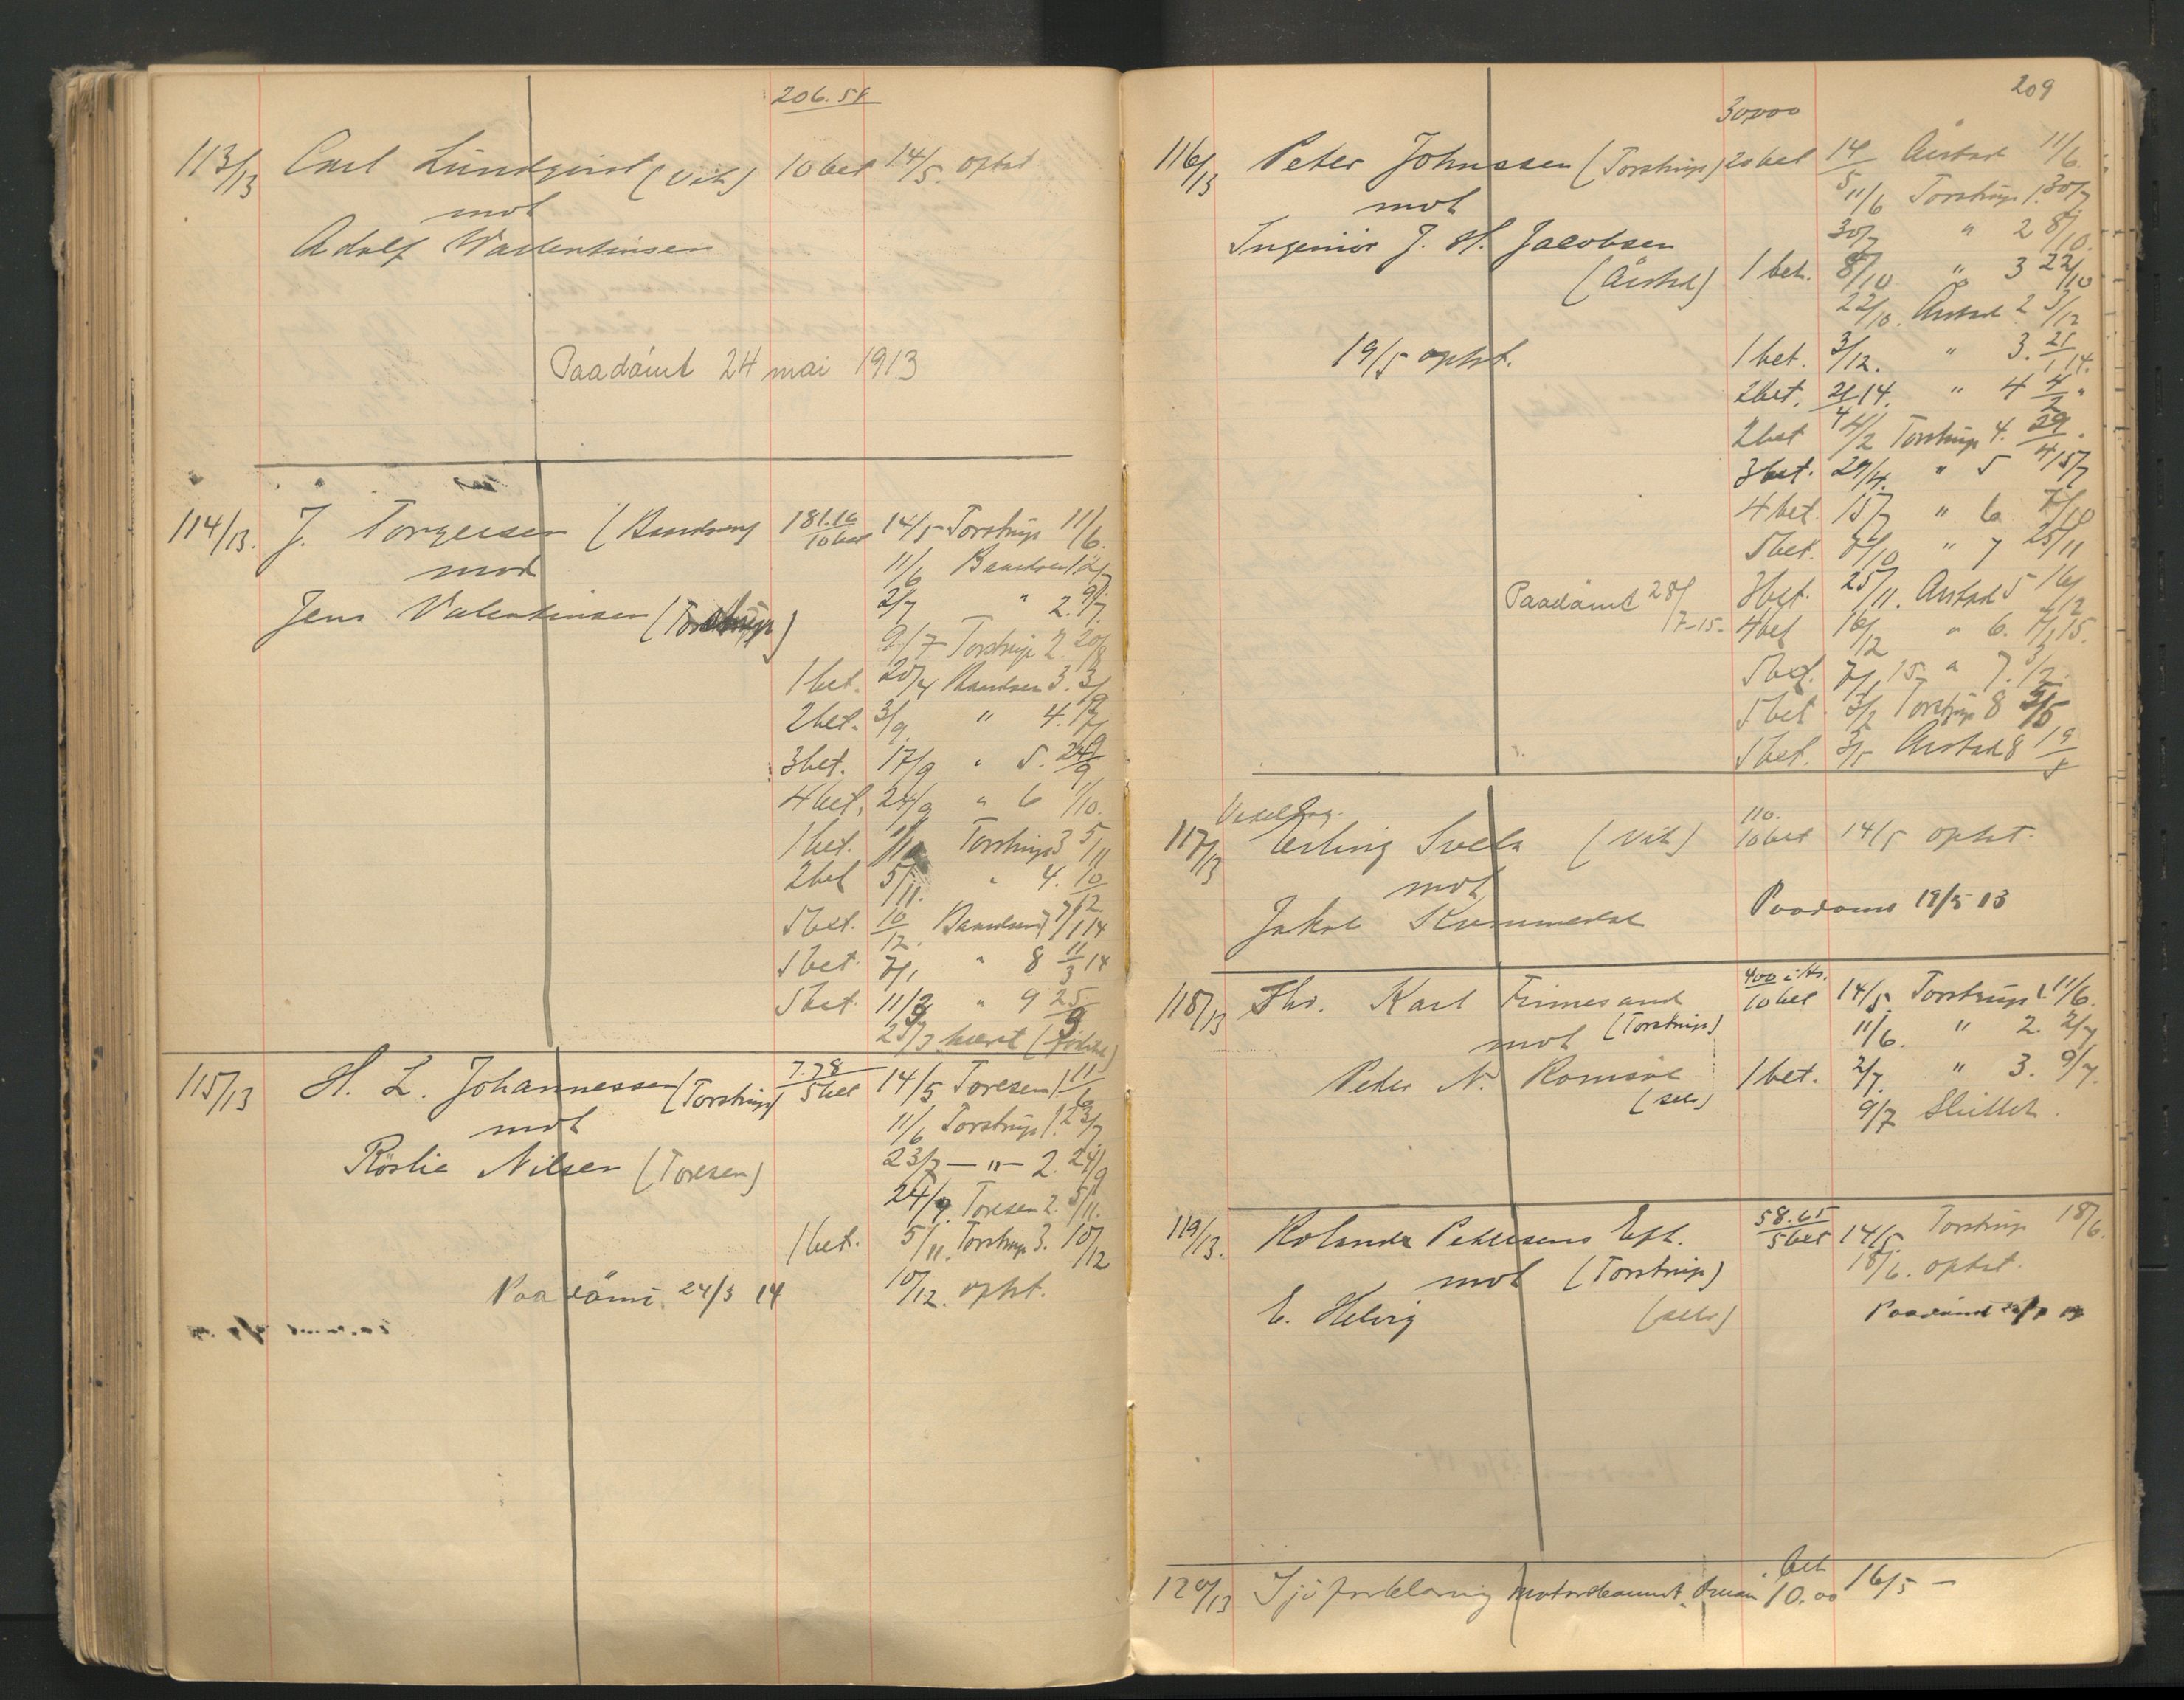 206.58
113/13 Carl Lundqvist (Vik) 10 bet 14/5. optat
mot
Adolf Wallentinsen
Paadömt 24 mai 1913
114/13. J. Torgersen (Baardsen) 181.16 10 bet 14/5 Torstrup 11/6.
mot 11/6 Baardsen 1. 2/7
Jens Valentinsen (Torstrup) 2/7 " 2. 9/7.
9/7 Torstrup 2. 20/8
1 bet. Baardsen 3. 3/9
2 bet. 3/9. " 4. 17/9
3 bet. 17/9 " 5. 24/9
4 bet. 24/9 " 6 1/10.
1 bet. Torstrup 3 5/11
2 bet 5/11. " 4. 10/12
5 bet. 10/12. Baardsen 7 7/1 14
5 bet. 7/1 " 8 11/3 14
5 bet. 11/3 " 9 25/3
25/3 hævet (forlikt)
115/13 H. L. Johannessen (Torstrup) 7.78 5 bet 14/5 Toresen 1. 11/6
mot 11/6 Torstrup 1. 23/7
Röslie Nilsen (Toresen) 23/7 — " — 2. 24/9
24/9. Toresen 2. 5/11.
1 bet. 5/11. Torstrup 3. 10/12
Paadömt. 24/3 14 10/12. optat.
209
30000
116/13 Peter Johnssen (Torstrup) 20 bet 14/5 Aarstad 11/6.
mot 11/6 Torstrup 1. 30/7
Ingeniör J. H. Jacobsen 30/7 " 2 8/10.
(Aarstad) 1 bet. 8/10 " 3 22/10
22/10. Aarstad 2 3/12
19/5 optat. 1 bet. 3/12. " 3. 21/1 14.
2 bet. 21/1 14. " 4 4/2 "
2 bet 4/2 Torstrup 4. 29/4.
3 bet. 29/4. " 5 15/7
4 bet. 15/7 " 6 7/10
5 bet. 7/10 " 7 25/11
Paadömt 28/7-15. 3 bet. 25/11. Aarstad 5 16/12
4 bet 16/12 " 6. 7/1 15.
5 bet. 7/1 15 " 7. 3/2.
5 bet. 3/2 Torstrup 8 3/5
5 bet. 3/5 Aarstad 8 19/5
117/13 Erling Svela (Vik) 110. 10 bet 14/5 optat.
mot
Jakob Kummedal Paadömt 19/5 13
118/13 Thr. Karl Finnesand 400 i/Hr. 10 bet 14/5. Torstrup 1. 11/6.
mot (Torstrup) 11/6. " 2. 2/7
Peter N. Romsöe 1 bet. 2/7. " 3. 9/7.
(selv) 9/7 Sluttet.
119/13. Rolander Pedersens Eft. 58.65 5 bet 14/5. Torstrup 18/6.
mot (Torstrup) 18/6. optat.
E. Helvig (selv) Paadömt
120/13 Sjöforklaring motorskaumt. bet 10.00 16/5 —